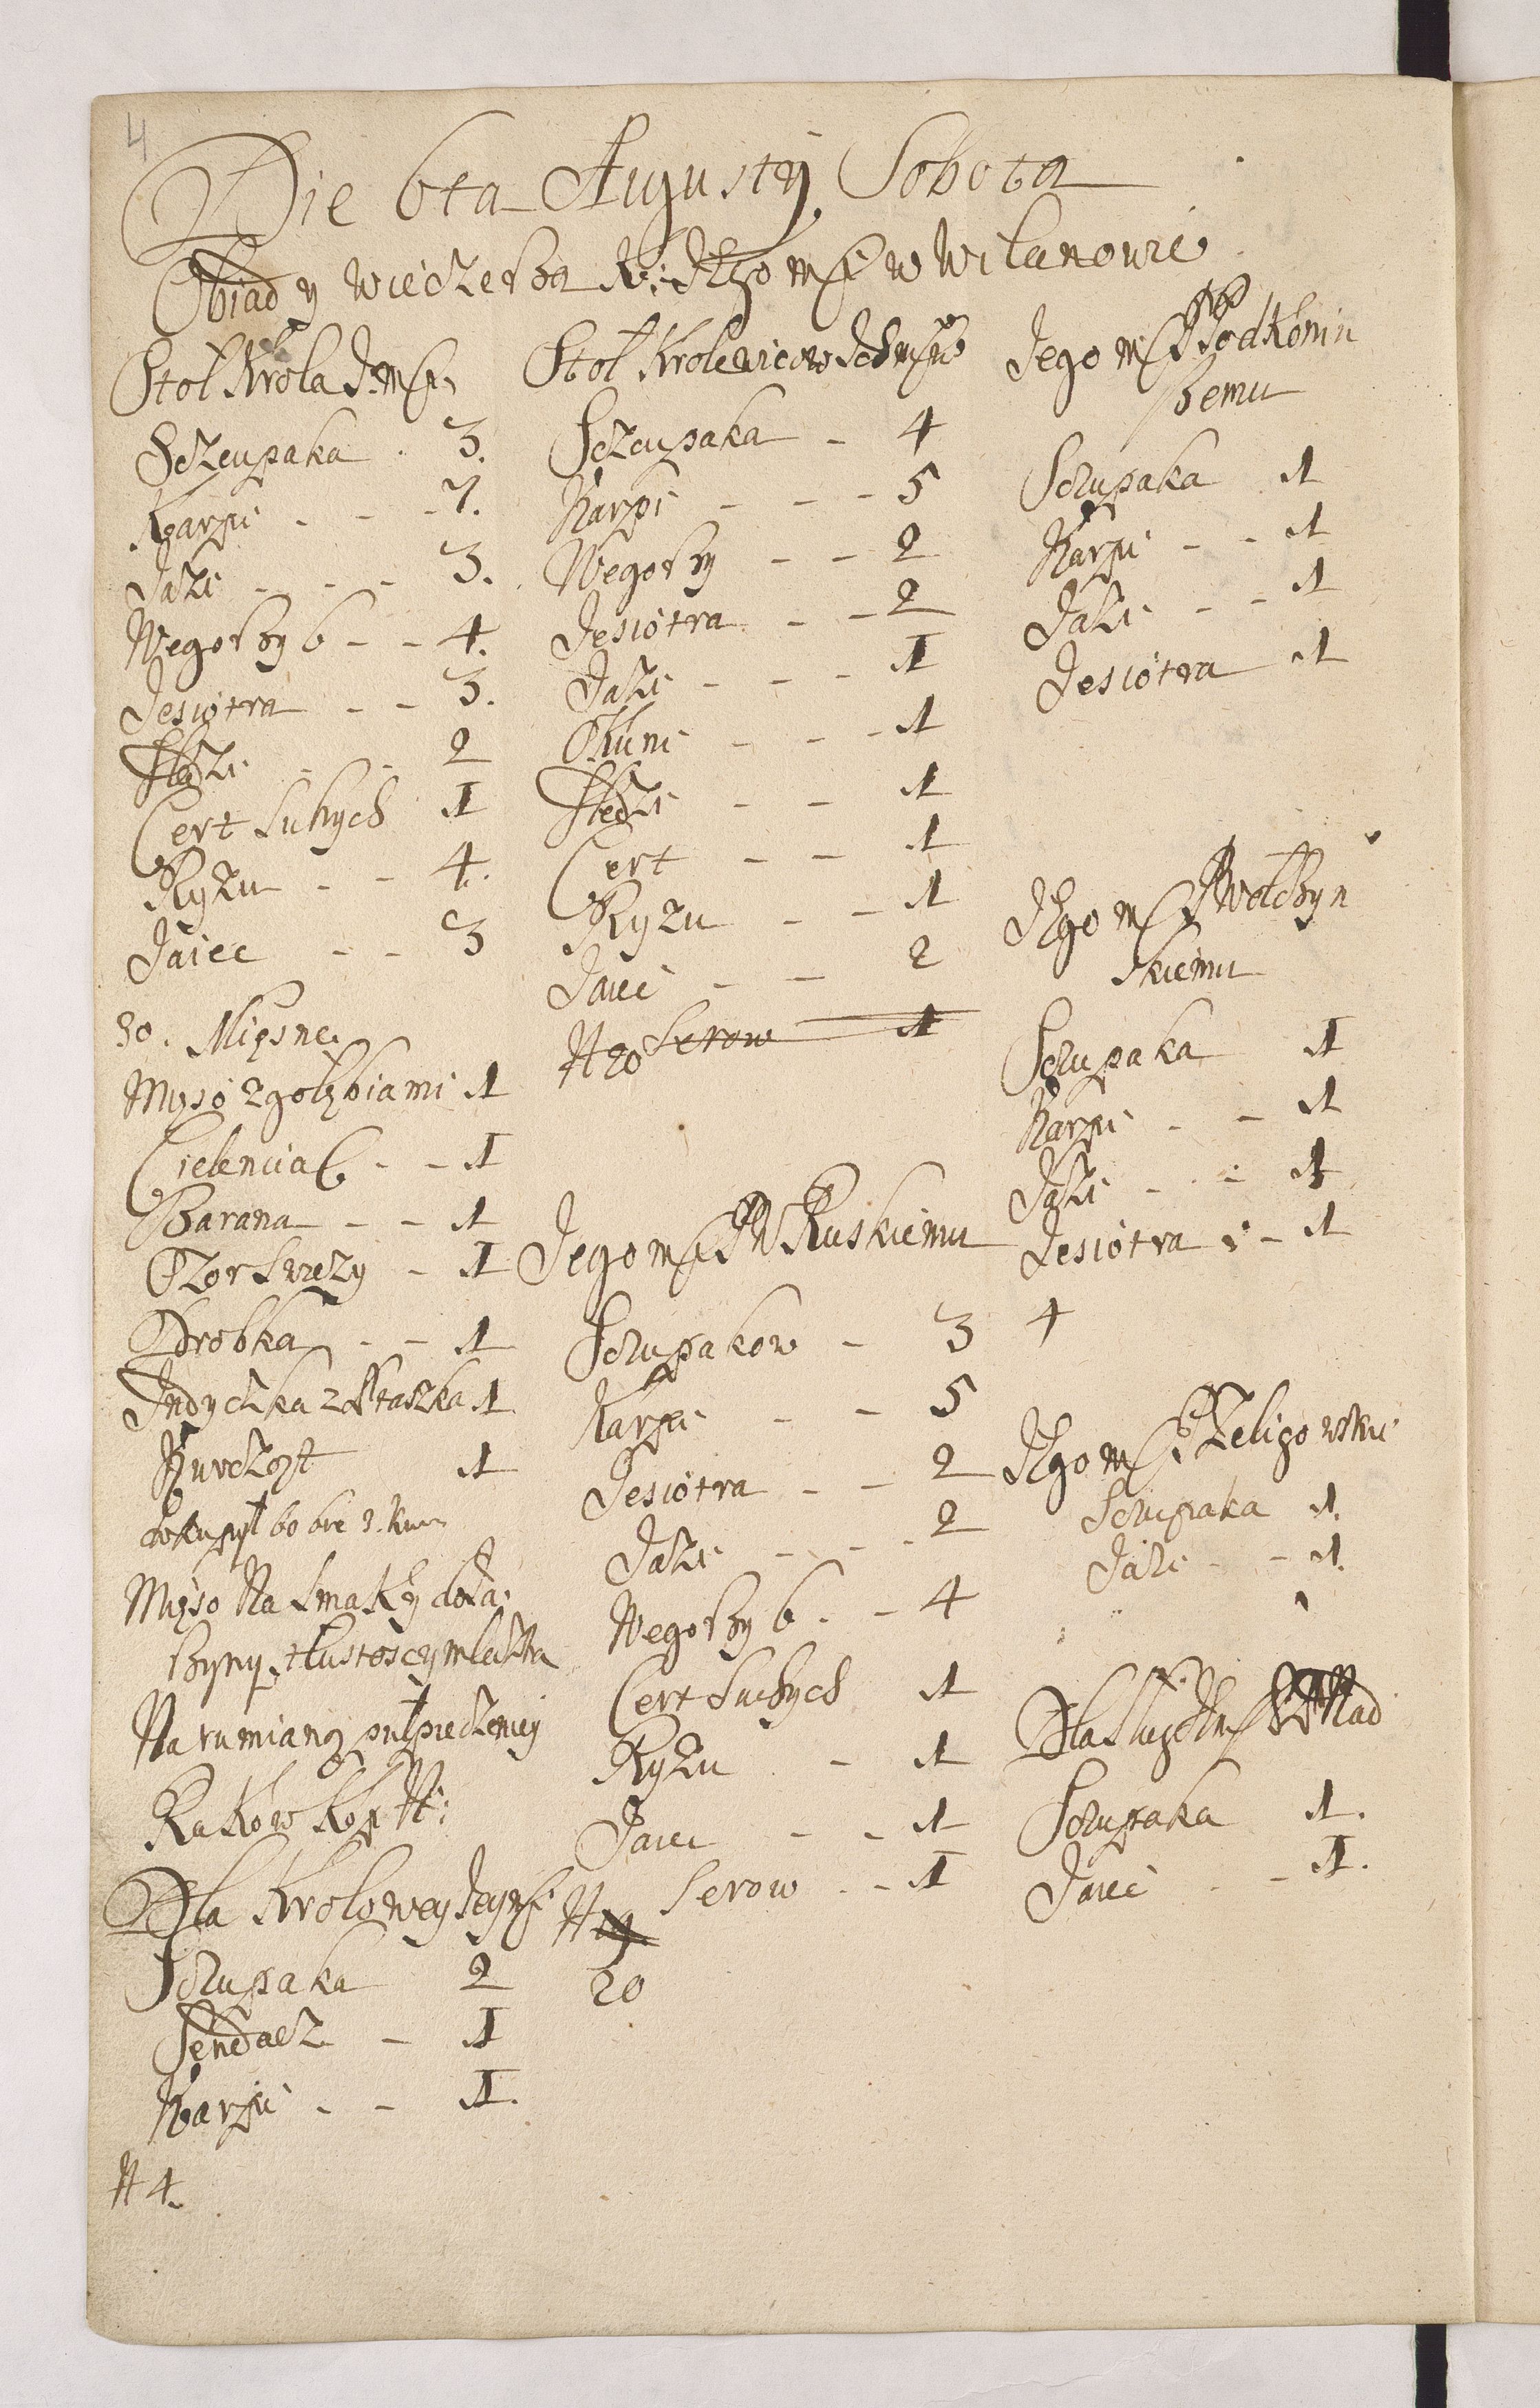 4
Die 6ta Augustij Sobota
Obiad y wieczerza K: JEgo mSci w wilanowie
Stoł Krola JmSci
Sczczupaka . 3.
Karpi - - - 7.
Jazi - - - 3.
Wegorzy 6 - - 4.
Jesiotra - - 3.
Sledzi - - 2
Cert suhych 1
Ryzu - - 4.
Jaiec - - 3
30. Mięsne.
Mięso z gołębiami 1
Cielencia C. - - 1
Barana - - 1
Ozor swiezy - 1
Drobka - - 1
Jndyczka z Ptaszka 1
Kurcząt 1
dokupył
Mięso Na smaki
tłustoscy mleczka
Na rumianą pułpieczeniey
Rakow kop N:
Dla Krolowey JeymSci
Sczupaka 2
Sendacz - 1
Karpi - - 1.
N 4.
Stoł Krolewicow JchmSciow
Sczczupaka - 4
Karpi - - - 5
Wegorzy - - 2
Jesiotra - - 2
Jazi - - - 1
Okuni - - - 1
Sledzi - - 1
Cert - - 1
Ryzu - - 1
Jaiec - - 2
Serow 1
N 20
Jego mSci PW Ruskiemu
Sczupakow - 3
Karpi - - 5
Jesiotra - - 2
Jazi - - - 2
Wegorzy 6. - 4
Cert suchych 1
Ryzu - 1
Jaiec - - 1
Serow - - 1
N 19
20
Jego mSci PP Podkoniu
szemu
Sczupaka 1
Karpi - - 1
Jazi - - 1
Jesiotra 1
JEgo mSci P Wołczyn
skiemu
Sczupaka 1
Karpi - - 1
Jazi - - 1
Jesiotra - 1
4
JEgo mSci P Zeligowskie
Sczupaka 1.
Jazi - - 1.
Dla sług JmSci W Nad
Sczupaka 1.
Jaiec - - 1.